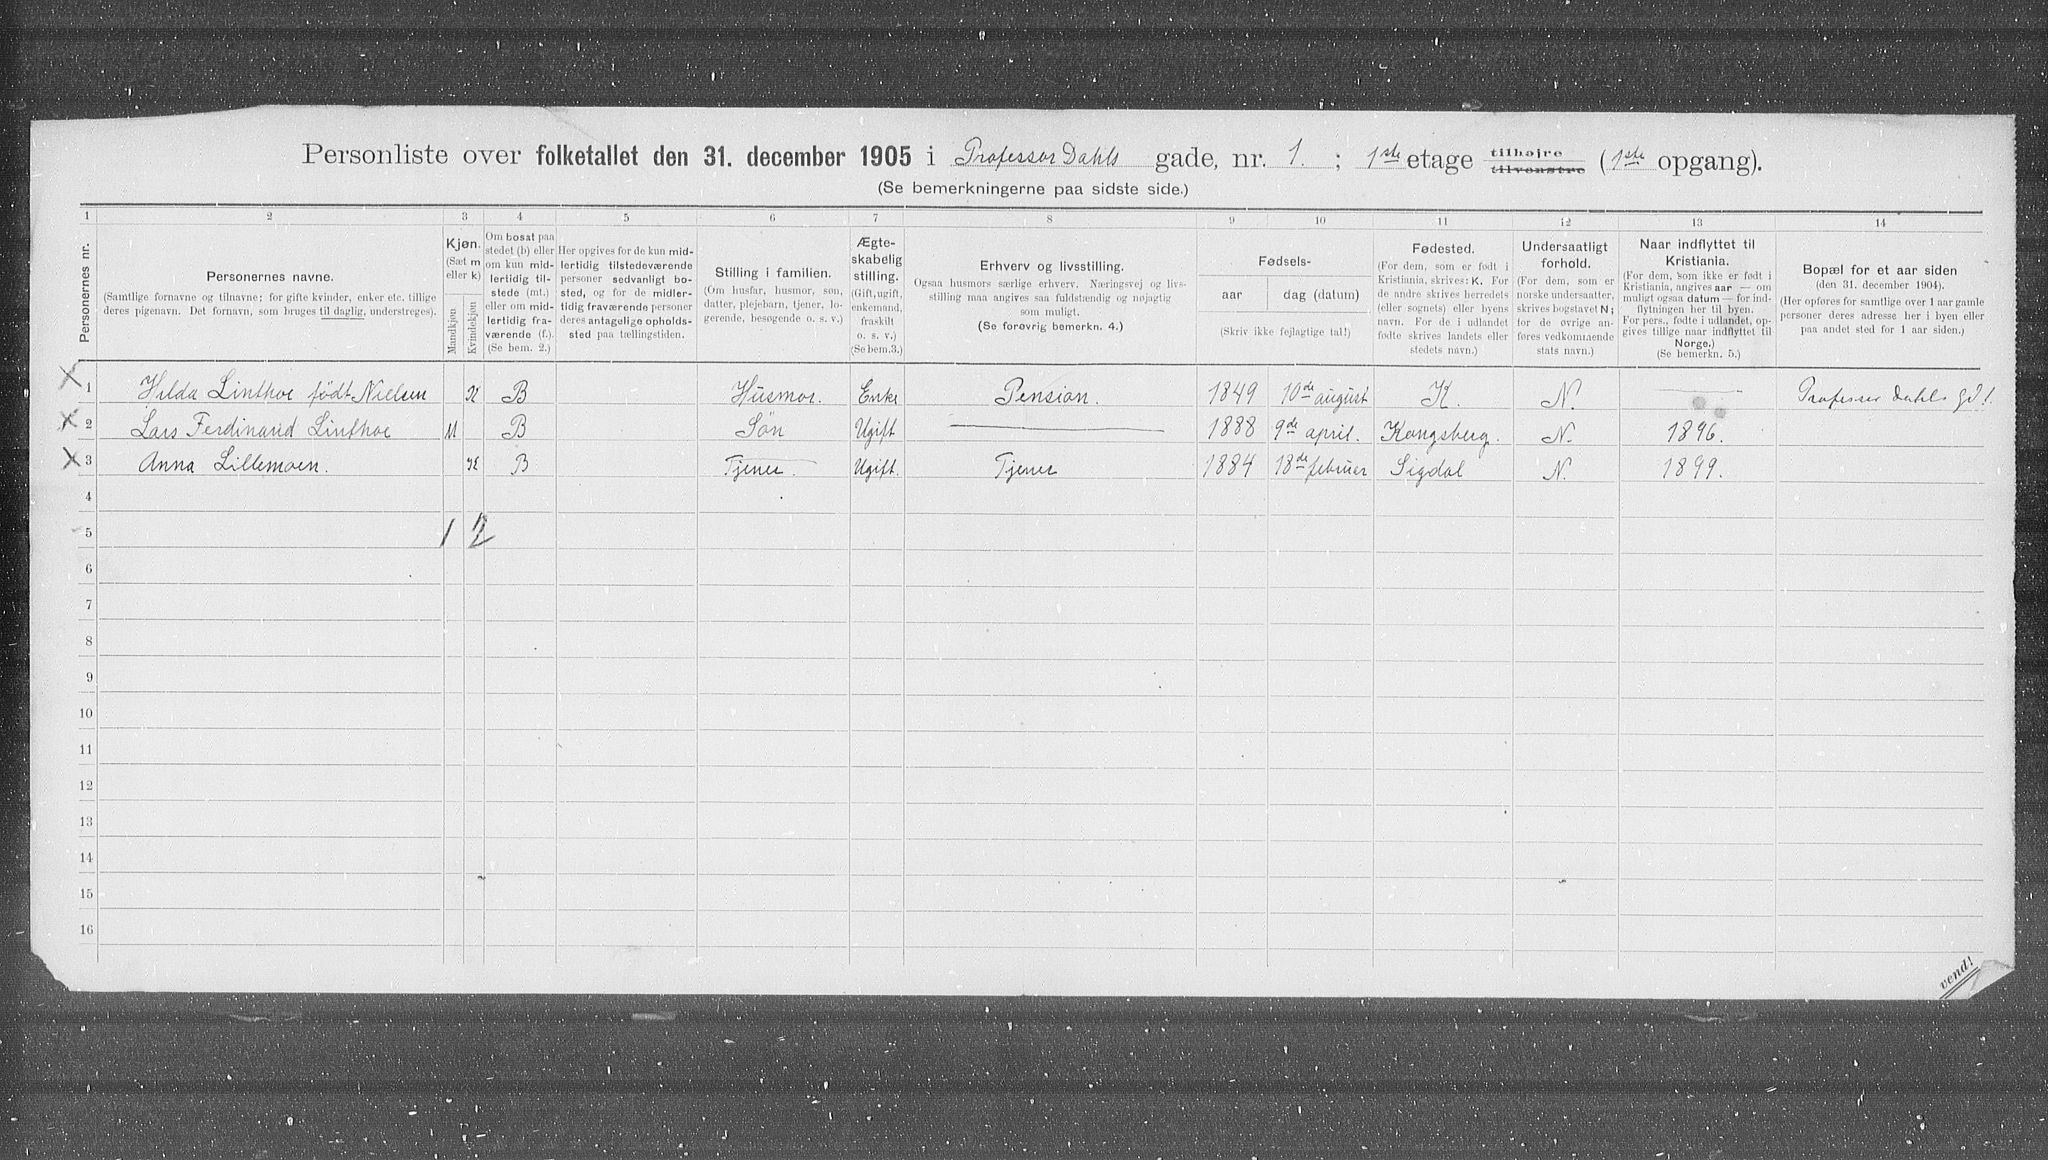 Personliste over folketallet den 31. december 1905 i Professor Dahls gade, nr. 1. ; 1ste etage tilhøjre tilvenstre (1ste opgang).
(Se bemerkningerne paa sidste side.)
1 2 3 4 5 6 7 8 9 10 11 12 13 14
Personernes nr.
Personernes navne.
(Samtlige fornavne og tilnavne; for gifte kvinder, enker etc. tillige
deres pigenavn. Det fornavn, som bruges til daglig, understreges).
Kjøn.
(Sæt m
eller k)
Mandkjøn
Kvindekjøn
Om bosat paa
stedet (b) eller
om kun mid-
lertidig til-
stede (mt.)
eller om mid-
lertidig fra-
værende (f.).
(Se bem. 2.)
Her opgives for de kun mid-
lertidig tilstedeværende
personer sedvanligt bo-
sted, og for de midler-
tidig fraværende personer
deres antagelige opholds-
sted paa tællingstiden.
Stilling i familien.
(Om husfar, husmor, søn,
datter, plejebarn, tjener, lo-
gerende, besøgende o. s. v.)
Ægte-
skabelig
stilling.
(Gift, ugift,
enkemand,
fraskilt
o. s. v.)
(Se bem.3.)
Erhverv og livsstilling.
Ogsaa husmors særlige erhverv. Næringsvej og livs-
stilling maa angives saa fuldstændig og nøjagtig
som muligt.
(Se forøvrig bemerkn. 4.)
Fødsels-
aar
dag (datum)
(Skriv ikke fejlagtige tal!)
Fødested.
(For dem, som er født i
Kristiania, skrives: K. For
de andre skrives herredets
(eller sognets) eller byens
navn. For de i udlandet
fødte skrives landets eller
stedets navn.)
Undersaatligt
forhold.
(For dem, som er
norske undersaatter,
skrives bogstavet N;
for de øvrige an-
føres vedkommende
stats navn.)
Naar indflyttet til
Kristiania.
(For dem, som ikke er født i
Kristiania, angives aar — om
muligt ogsaa datum — for ind-
flytningen her til byen.
For pers., fødte i udlandet, op-
gives tillige naar indflyttet til
Norge.)
(Se bemerkn. 5.)
Bopæl for et aar siden
(den 31. december 1904).
(Her opføres for samtlige over 1 aar gamle
personer deres adresse her i byen eller
paa andet sted for 1 aar siden.)
1 Hilda Linthoe født Nielsen K B Husmor. Enke Pension. 1849 10de august K. N. Professor Dahls gd 1.
2 Lars Ferdinand Linthoe M B Søn Ugift 1888 9de april. Kongsberg. N. 1896.
3 Anna Lillemoen. K B Tjener. Ugift. Tjener 1884 18de februar Sigdal N. 1899.
4
5 1 2
6
7
8
9
10
11
12
13
14
15
16
vend!